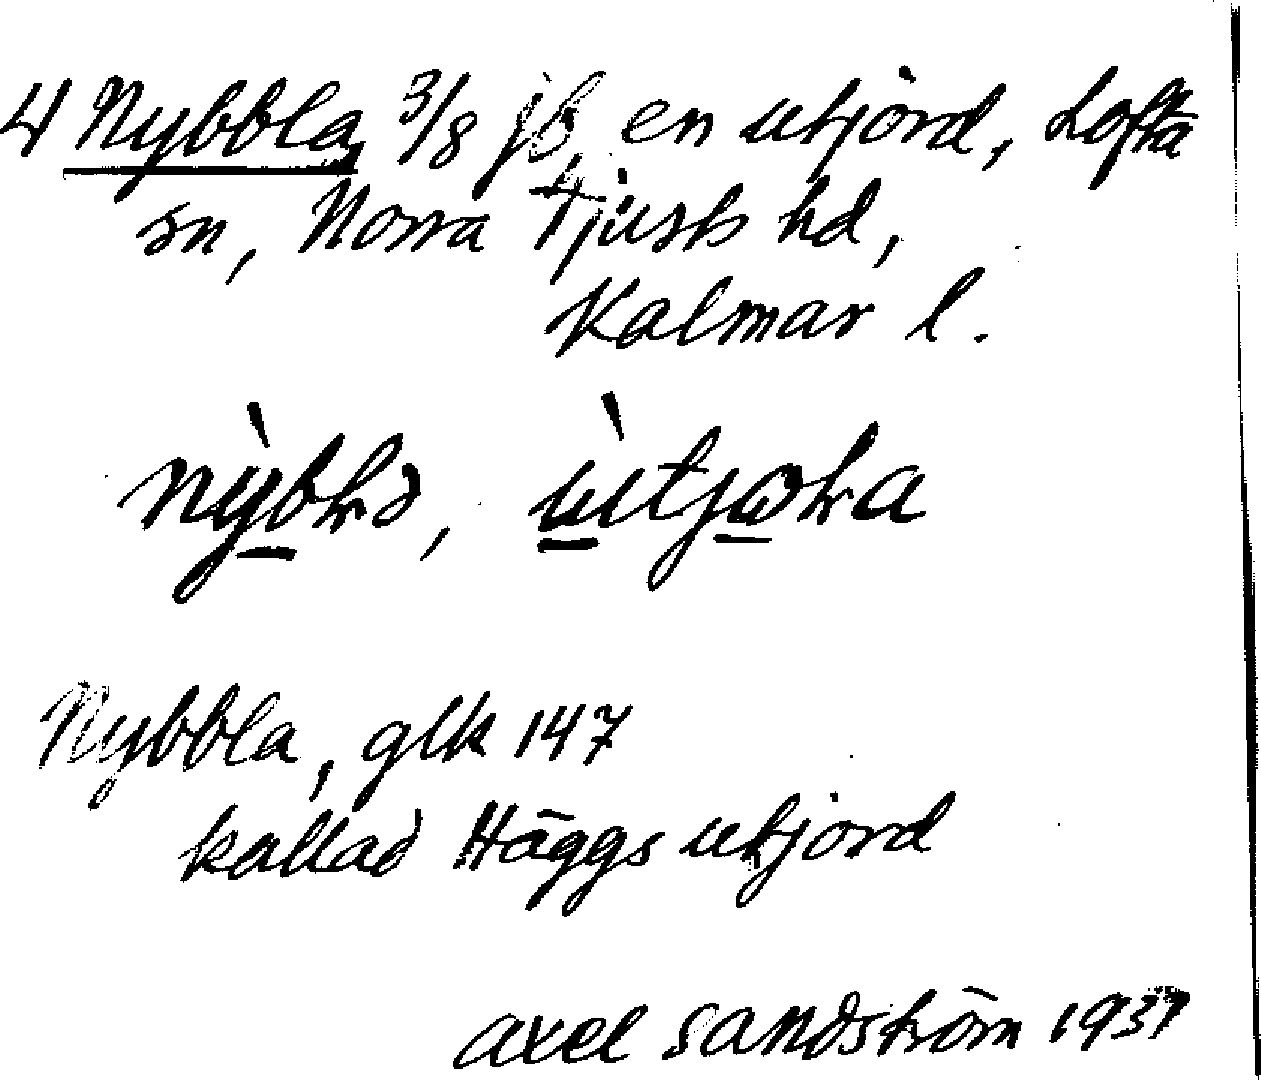 4 Nybbla, 3/8 jb, en utjord, Lofta
sn, Norra Tjusts hd,
Kalmar l.
Nybbla, glk 147
kallad Häggs utjord
axel sandström 1937